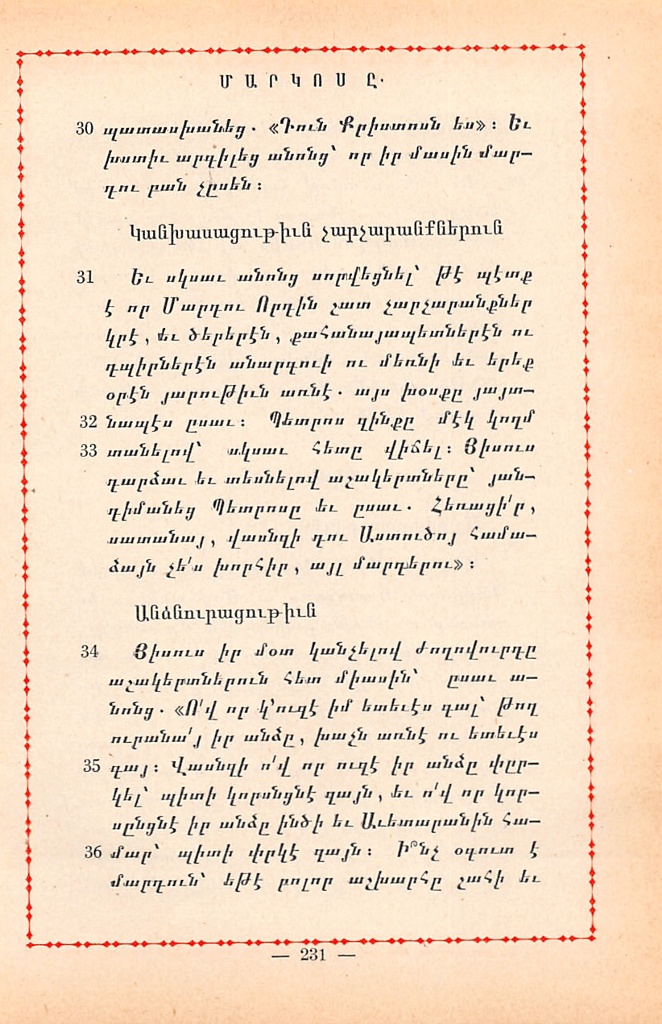 ՄԱՐԿՈՍ Ը․
30 պատասխանեց․ «Դուն Քրիստոսն ես»։ Եւ
խստիւ արգիլեց անոնց՝ որ իր մասին մար–
դու բան չըսեն։
Կանխասացութիւն չարչարանքներուն
31 Եւ սկսաւ անոնց սորվեցնել՝ թէ պէտք
է որ Մարդու Որդին շատ չարչարանքներ
կրէ, եւ ծերերէն, քահանայապետներէն ու
դպիրներէն անարգուի ու մեռնի եւ երեք
օրէն յարութիւն առնէ․ այս խօսքը յայտ–
32 նապէս ըսաւ։ Պետրոս զինքը մէկ կողմ
33 տանելով՝ սկսաւ հետը վիճել։ Յիսուս
դարձաւ եւ տեսնելով աշակերտները՝ յան–
դիմանեց Պետրոսը եւ ըսաւ․ Հեռացի՛ր,
սատանայ, վասնզի դու Աստուծոյ համա–
ձայն չե՛ս խորհիր, այլ մարդերու»։
Անձնուրացութիւն
34 Յիսուս իր մօտ կանչելով ժողովուրդը
աշակերտներուն հետ միասին՝ ըսաւ ա–
նոնց․ «Ո՛վ որ կ՚ուզէ իմ ետեւէս գալ՝ թող
ուրանա՛յ իր անձը, խաչն առնէ ու ետեւէս
35 գայ։ Վասնզի ո՛վ որ ուզէ իր անձը փըր–
կել՝ պիտի կորսնցնէ զայն, եւ ո՛վ որ կոր–
սընցնէ իր անձը ինծի եւ Աւետարանին հա–
36 մար՝ պիտի փրկէ զայն։ Ի՞նչ օգուտ է
մարդուն՝ եթէ բոլոր աշխարհը շահի եւ
— 231 —